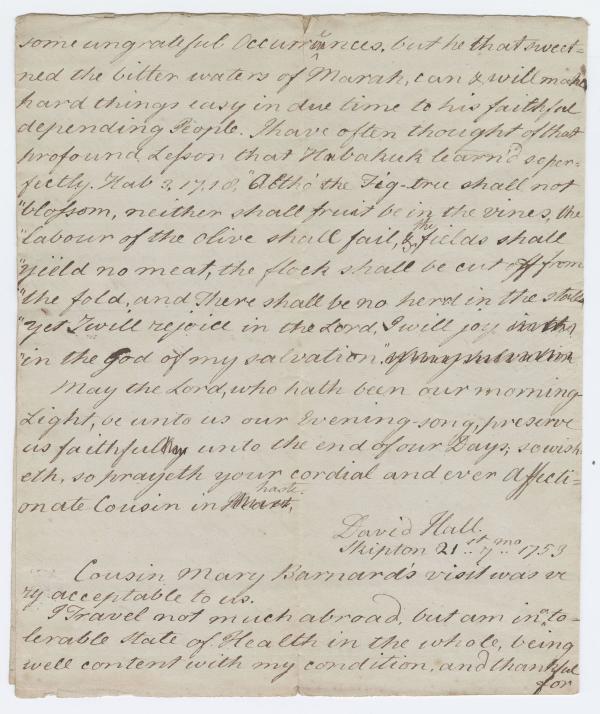 some ungrateful Occurrences, but he that sweet-
ned the bitter waters of Marah, can & will make
hard things easy in due time to his faithful
depending People. I have often thought of that
profound Lesson that Habakuk learn'd so per-
fectly. Hab 3. 17. 18. "Altho' the Fig-tree shall not
"blossom, neither shall fruit be in the vines, the
"labour of the olive shall fail, & the fields shall
"yield no meat, the flock shall be cut off from
"the fold, and There shall be no herd in the stalls
"yet I will rejoice in the Lord, I will joy in the
"in the God of my salvation." of my salvation
May the Lord, who hath been our morning-
Light, be unto us our Evening-song, preserve
us faithful unto the end of our Days; so wish-
eth, so prayeth your cordial and ever Affecti-
onate Cousin in haste.
David Hall.
Skipton 21st. 7mo. 1753
Cousin Mary Barnard's visit was ve
ry acceptable to us.
I Travel not much abroad, but am in a to-
lerable State of Health in the whole, being
well content with my condition, and thankful
for